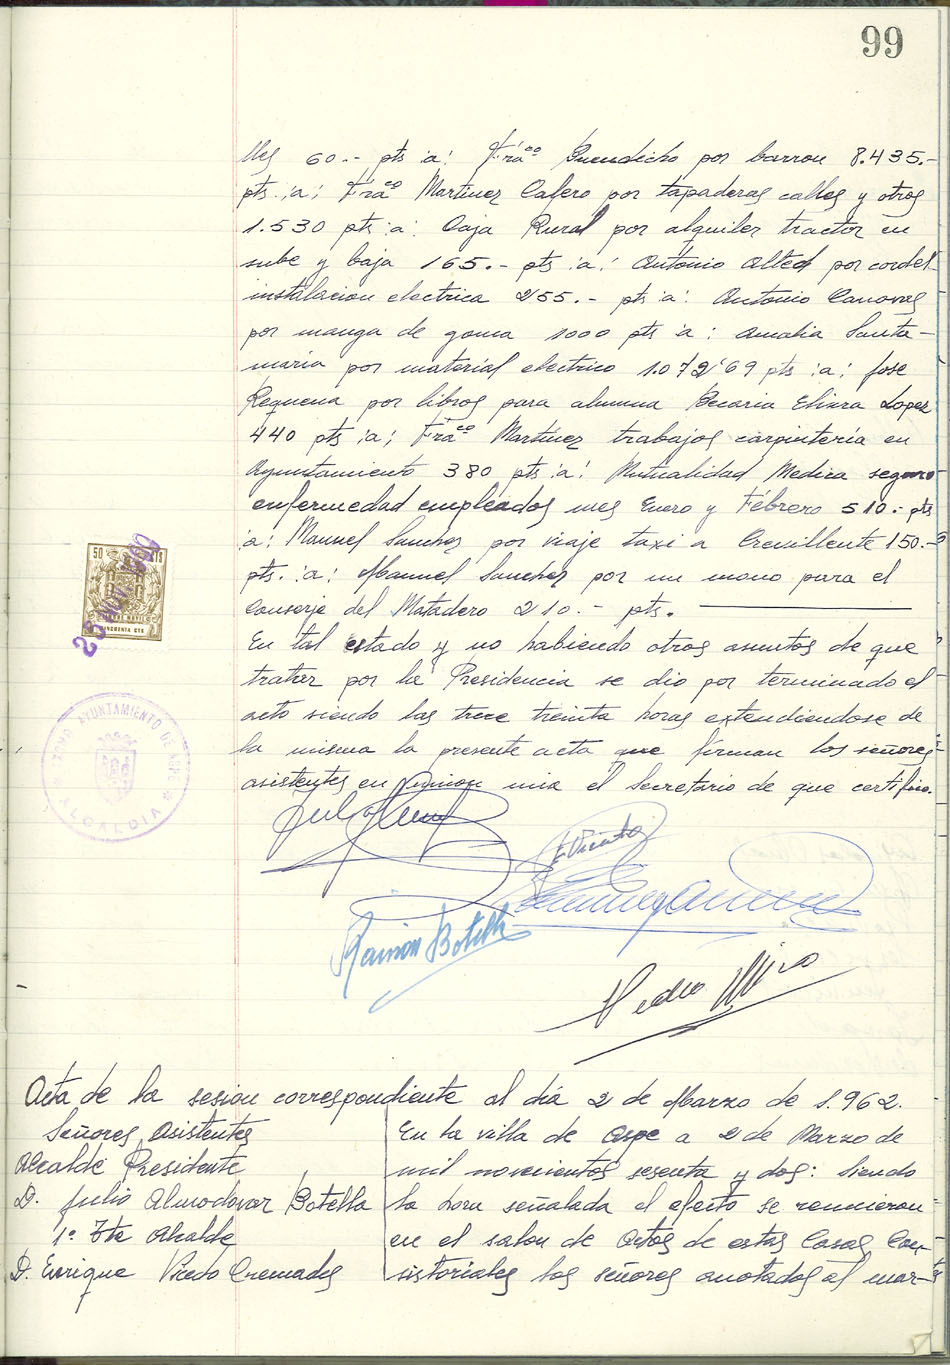 99
lles 60.- pts :a: Fraco Buendicho por barron 8.435.-
pts. :a: Fraco Martinez Calero por tapaderas calles y otros
1.530 pts :a: Caja Rural por alquiler tractor en
sube y baja 165.- pts :a: Antonio Alted por cordel
instalacion electrica 255.- pts :a: Antonio Canovas
por manga de goma 1000 pts :a: Amalia Santa-
maria por material electrico 1.072'69 pts :a: Jose
Requena por libros para alumna Becaria Elvira Lopez
440 pts :a: Fraco Martinez trabajos carpinteria en
Ayuntamiento 380 pts :a: Mutualidad Medica seguro
enfermedad empleados mes Enero y Febrero 510.- pts
:a: Manuel Sanchez por viaje taxi a Crevillente 150.-
pts. :a: Manuel Sanchez por un mono para el
Conserje del Matadero 210.- pts.
En tal estado y no habiendo otros asuntos de que
tratar por la Presidencia se dio por terminado el
acto siendo las trece treinta horas extendiendose de
la misma la presente acta que firman los señores
asistentes en union mia el Secretario de que certifico.
50 CTS
CINCUENTA CTS
AYUNTAMIENTO DE ASPE
ALCALDIA
E Vicedo
Ramón Botella
Pedro Miro
Acta de la sesion correspondiente al dia 2 de Marzo de 1.962.
Señores Asistentes
Alcalde Presidente
D. Julio Almodovar Botella
1º Tte Alcalde
D. Enrique Vicedo Cremades
En la villa de Aspe a 2 de Marzo de
mil novecientos sesenta y dos: siendo
la hora señalada al efecto se reunieron
en el salon de Actos de estas Casas Con-
sistoriales los señores anotados al mar-